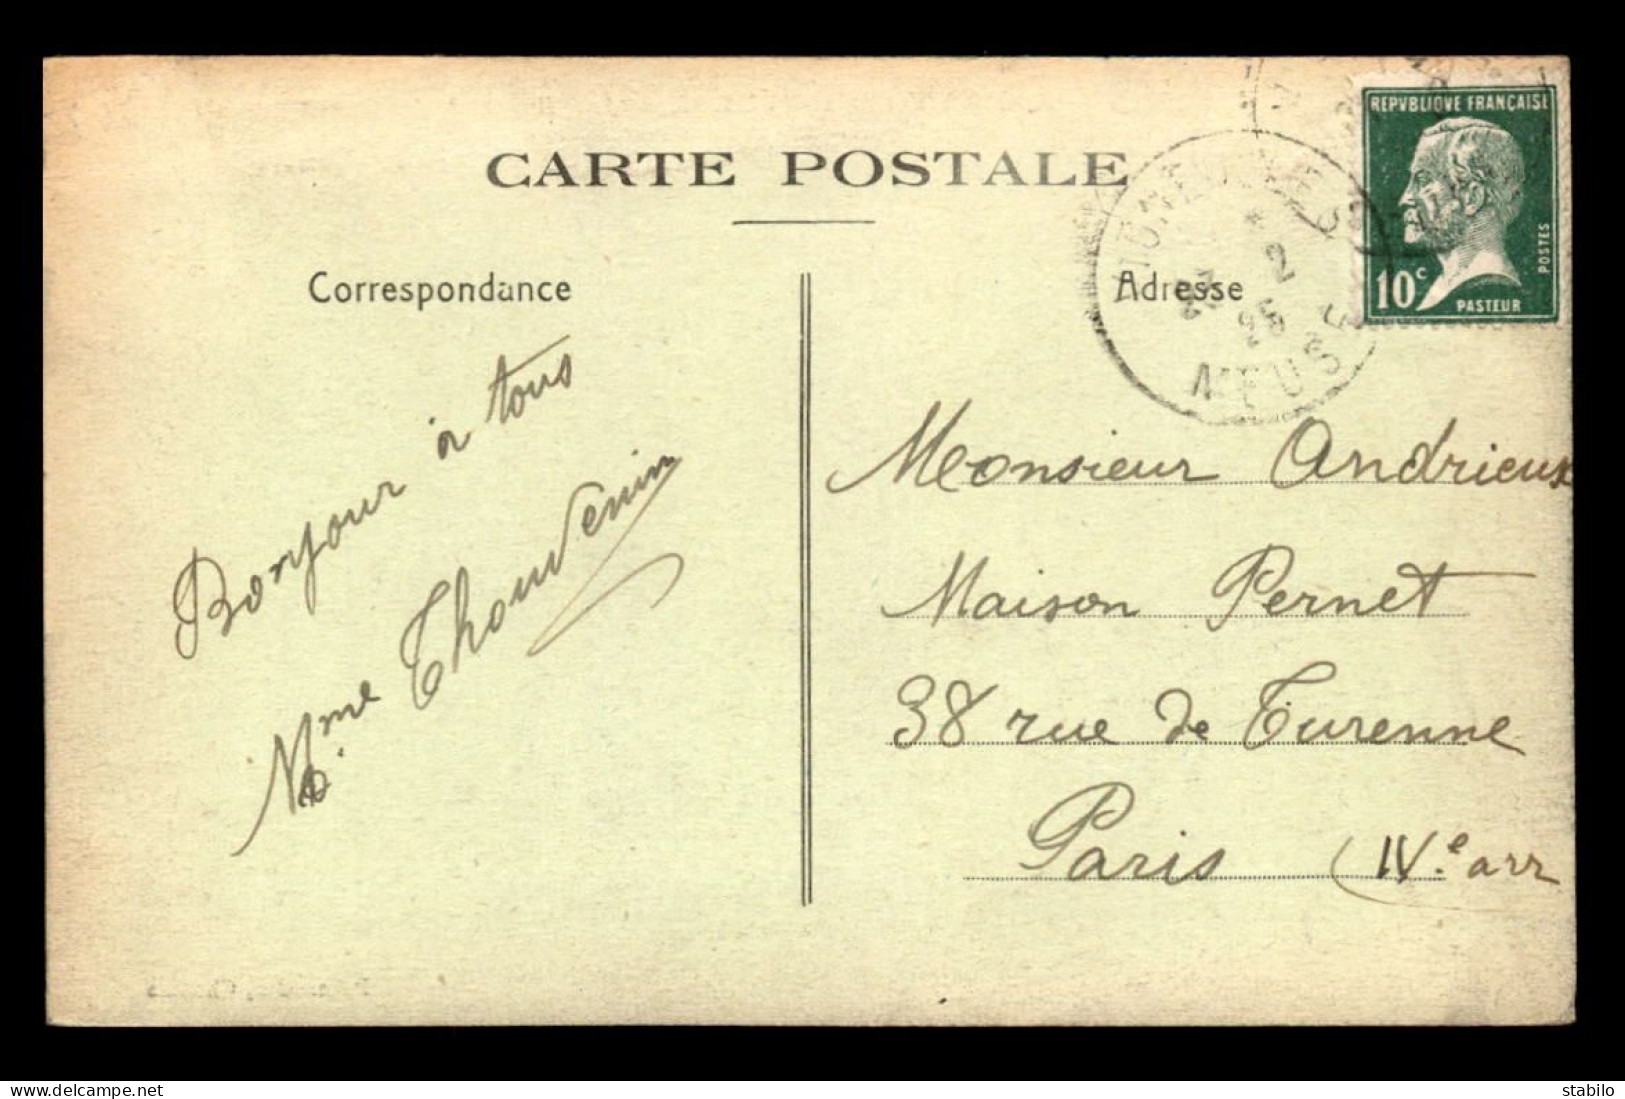 CARTE POSTALE
Correspondance
Adresse
REPVBLIQVE FRANÇAISE
10c
PASTEUR
POSTES
2
25
MEUSE
Bonjour à tous
Mme Thouvenin
Monsieur Andrieux
Maison Pernet
38 rue de Turenne
Paris (IVe arr
delcampe.net
stabilo